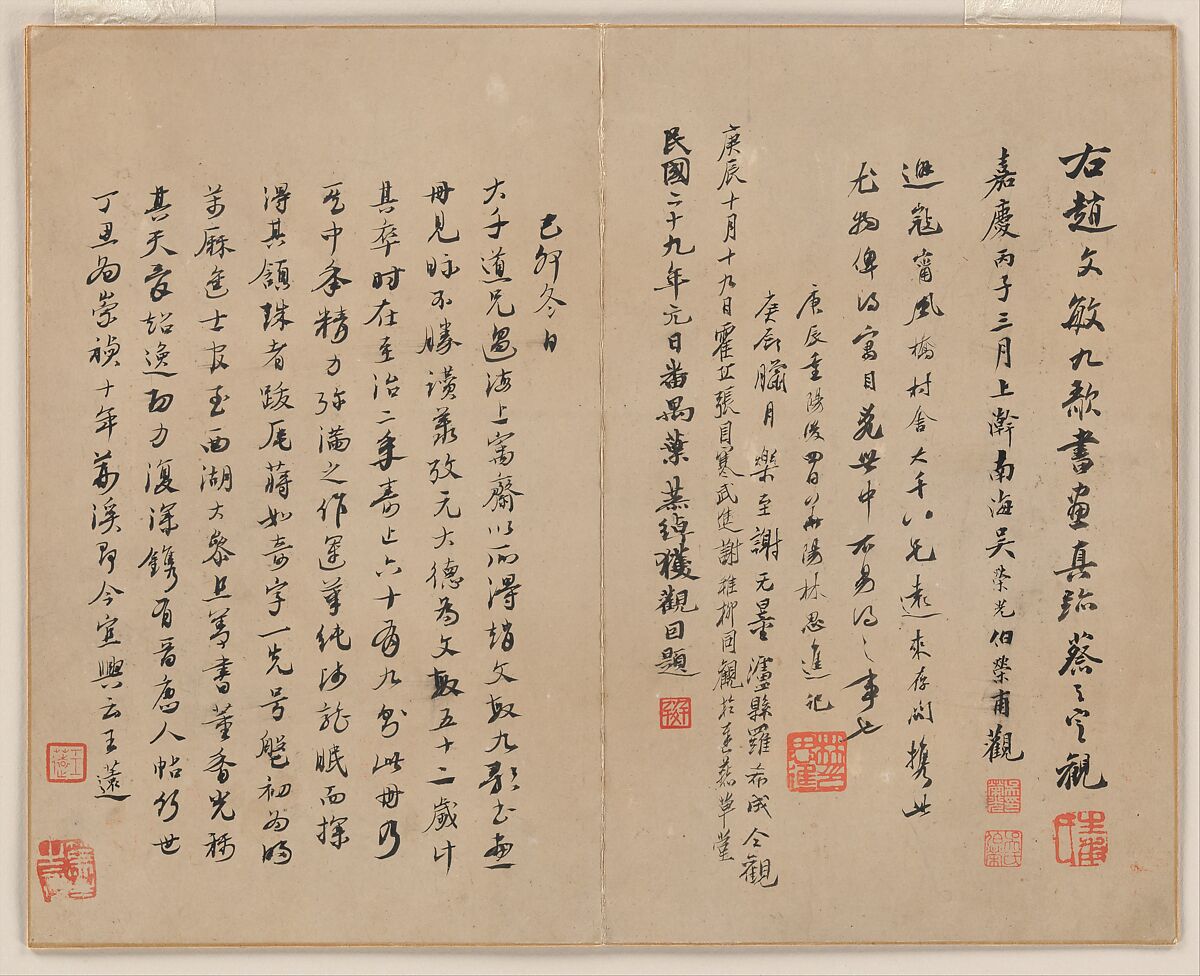 右趙文敏九歌書畫真跡蔡之定觀
嘉慶丙子三月上澣南海吳榮光伯榮甫觀
避寇甯風橋村舍大千八兄遠來存問携此
尤物俾得寓目免世中不易得之事也
庚辰重陽後四日華陽林思進記
庚辰臘月樂至謝无量瀘縣羅希成仝觀
庚辰十月十九日霍丘張目寒武進謝稚柳同觀於草堂
民國二十九年元日番禺葉恭綽獲觀因題
己卯冬日
大千道兄過海上寓齋以所得趙文敏九歌書畫
冊見眎不勝讚羨攷元大德為文敏五十二歲廿
其卒時在至治二年壽止六十有九則此冊乃
其中年精力弥滿之作運筆純沙龍眠而探
得其頷珠者跋尾蔣如奇字一先号盤初為明
萬厤進士官至西湖大參且善書董香光稱
其天資超逸功力復深鐫有晉唐人帖行世
丁丑為崇禎十年荊溪即今宜興云王薳